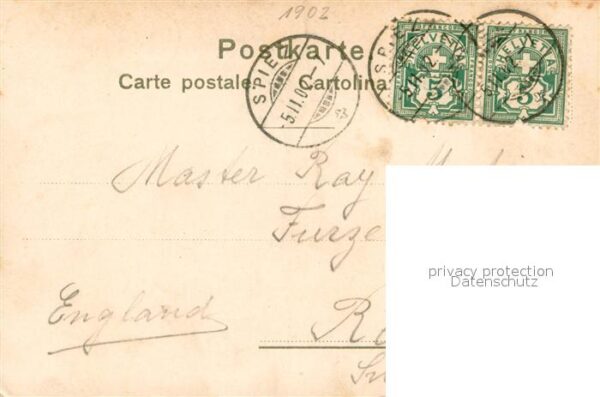 1902
Postkarte
Carte postale. Cartolina
SPIEZ
5.II.02.-7
HELVETIA 5
HELVETIA 5
Master Ray
Furze
England
privacy protection
Datenschutz